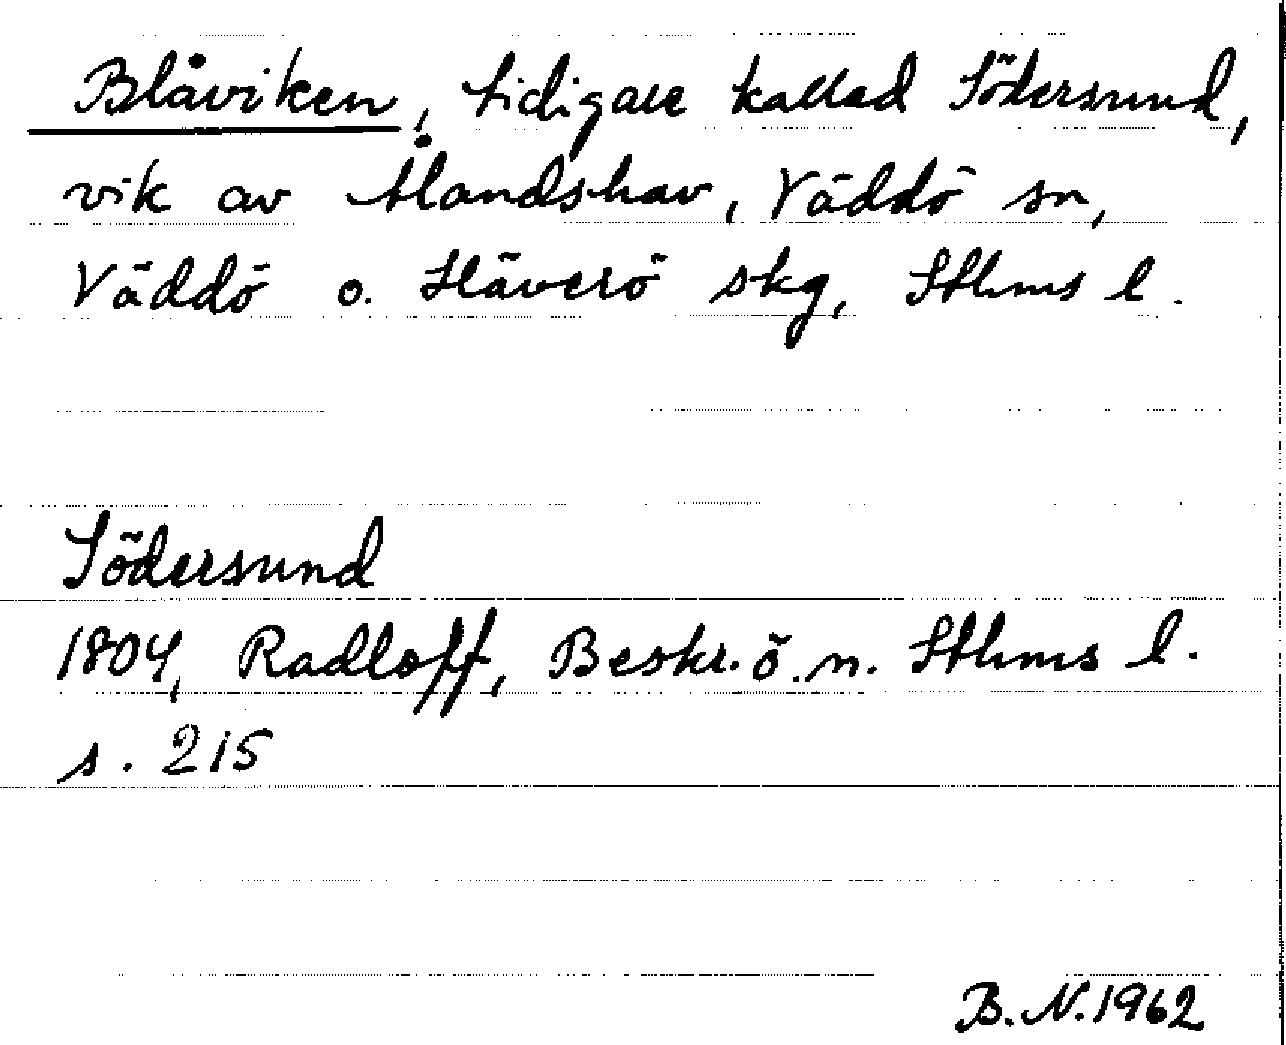 Blåviken, tidigare kallad Södersund,
vik av Ålandshav, Väddö sn,
Väddö o. Häverö skg, Sthms l.
Södersund
1804, Radloff, Beskr. ö. n. Sthms l.
s. 215
B. N. 1962